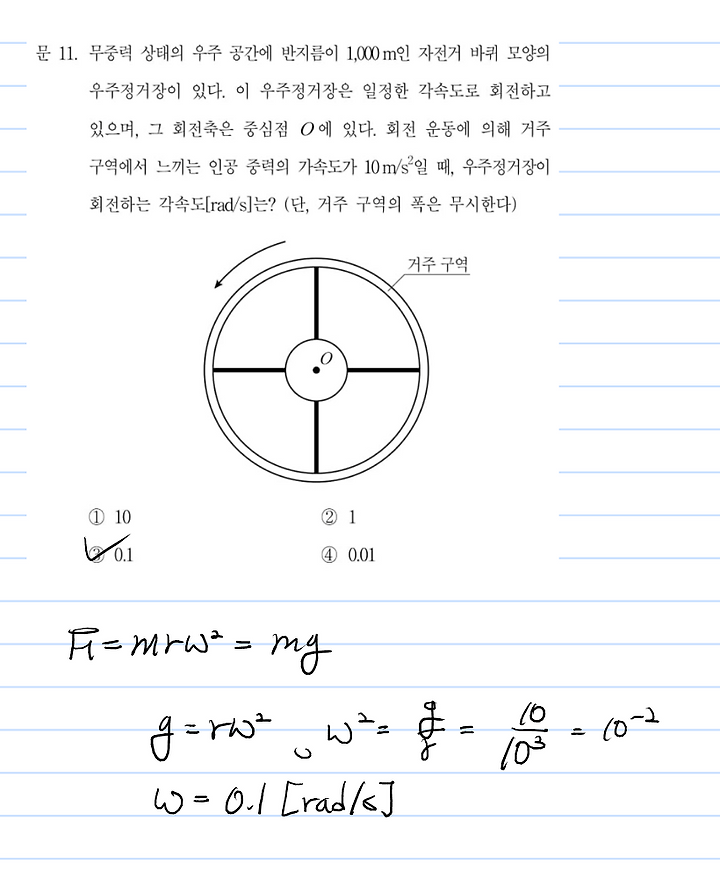 문 11. 무중력 상태의 우주 공간에 반지름이 1,000 m인 자전거 바퀴 모양의
우주정거장이 있다. 이 우주정거장은 일정한 각속도로 회전하고
있으며, 그 회전축은 중심점 O에 있다. 회전 운동에 의해 거주
구역에서 느끼는 인공 중력의 가속도가 10 m/s²일 때, 우주정거장이
회전하는 각속도[rad/s]는? (단, 거주 구역의 폭은 무시한다)
거주 구역
O
① 10 ② 1
③ 0.1 ④ 0.01
F = mrω² = mg
g = rω², ω² = g/r = 10/10³ = 10⁻²
ω = 0.1 [rad/s]